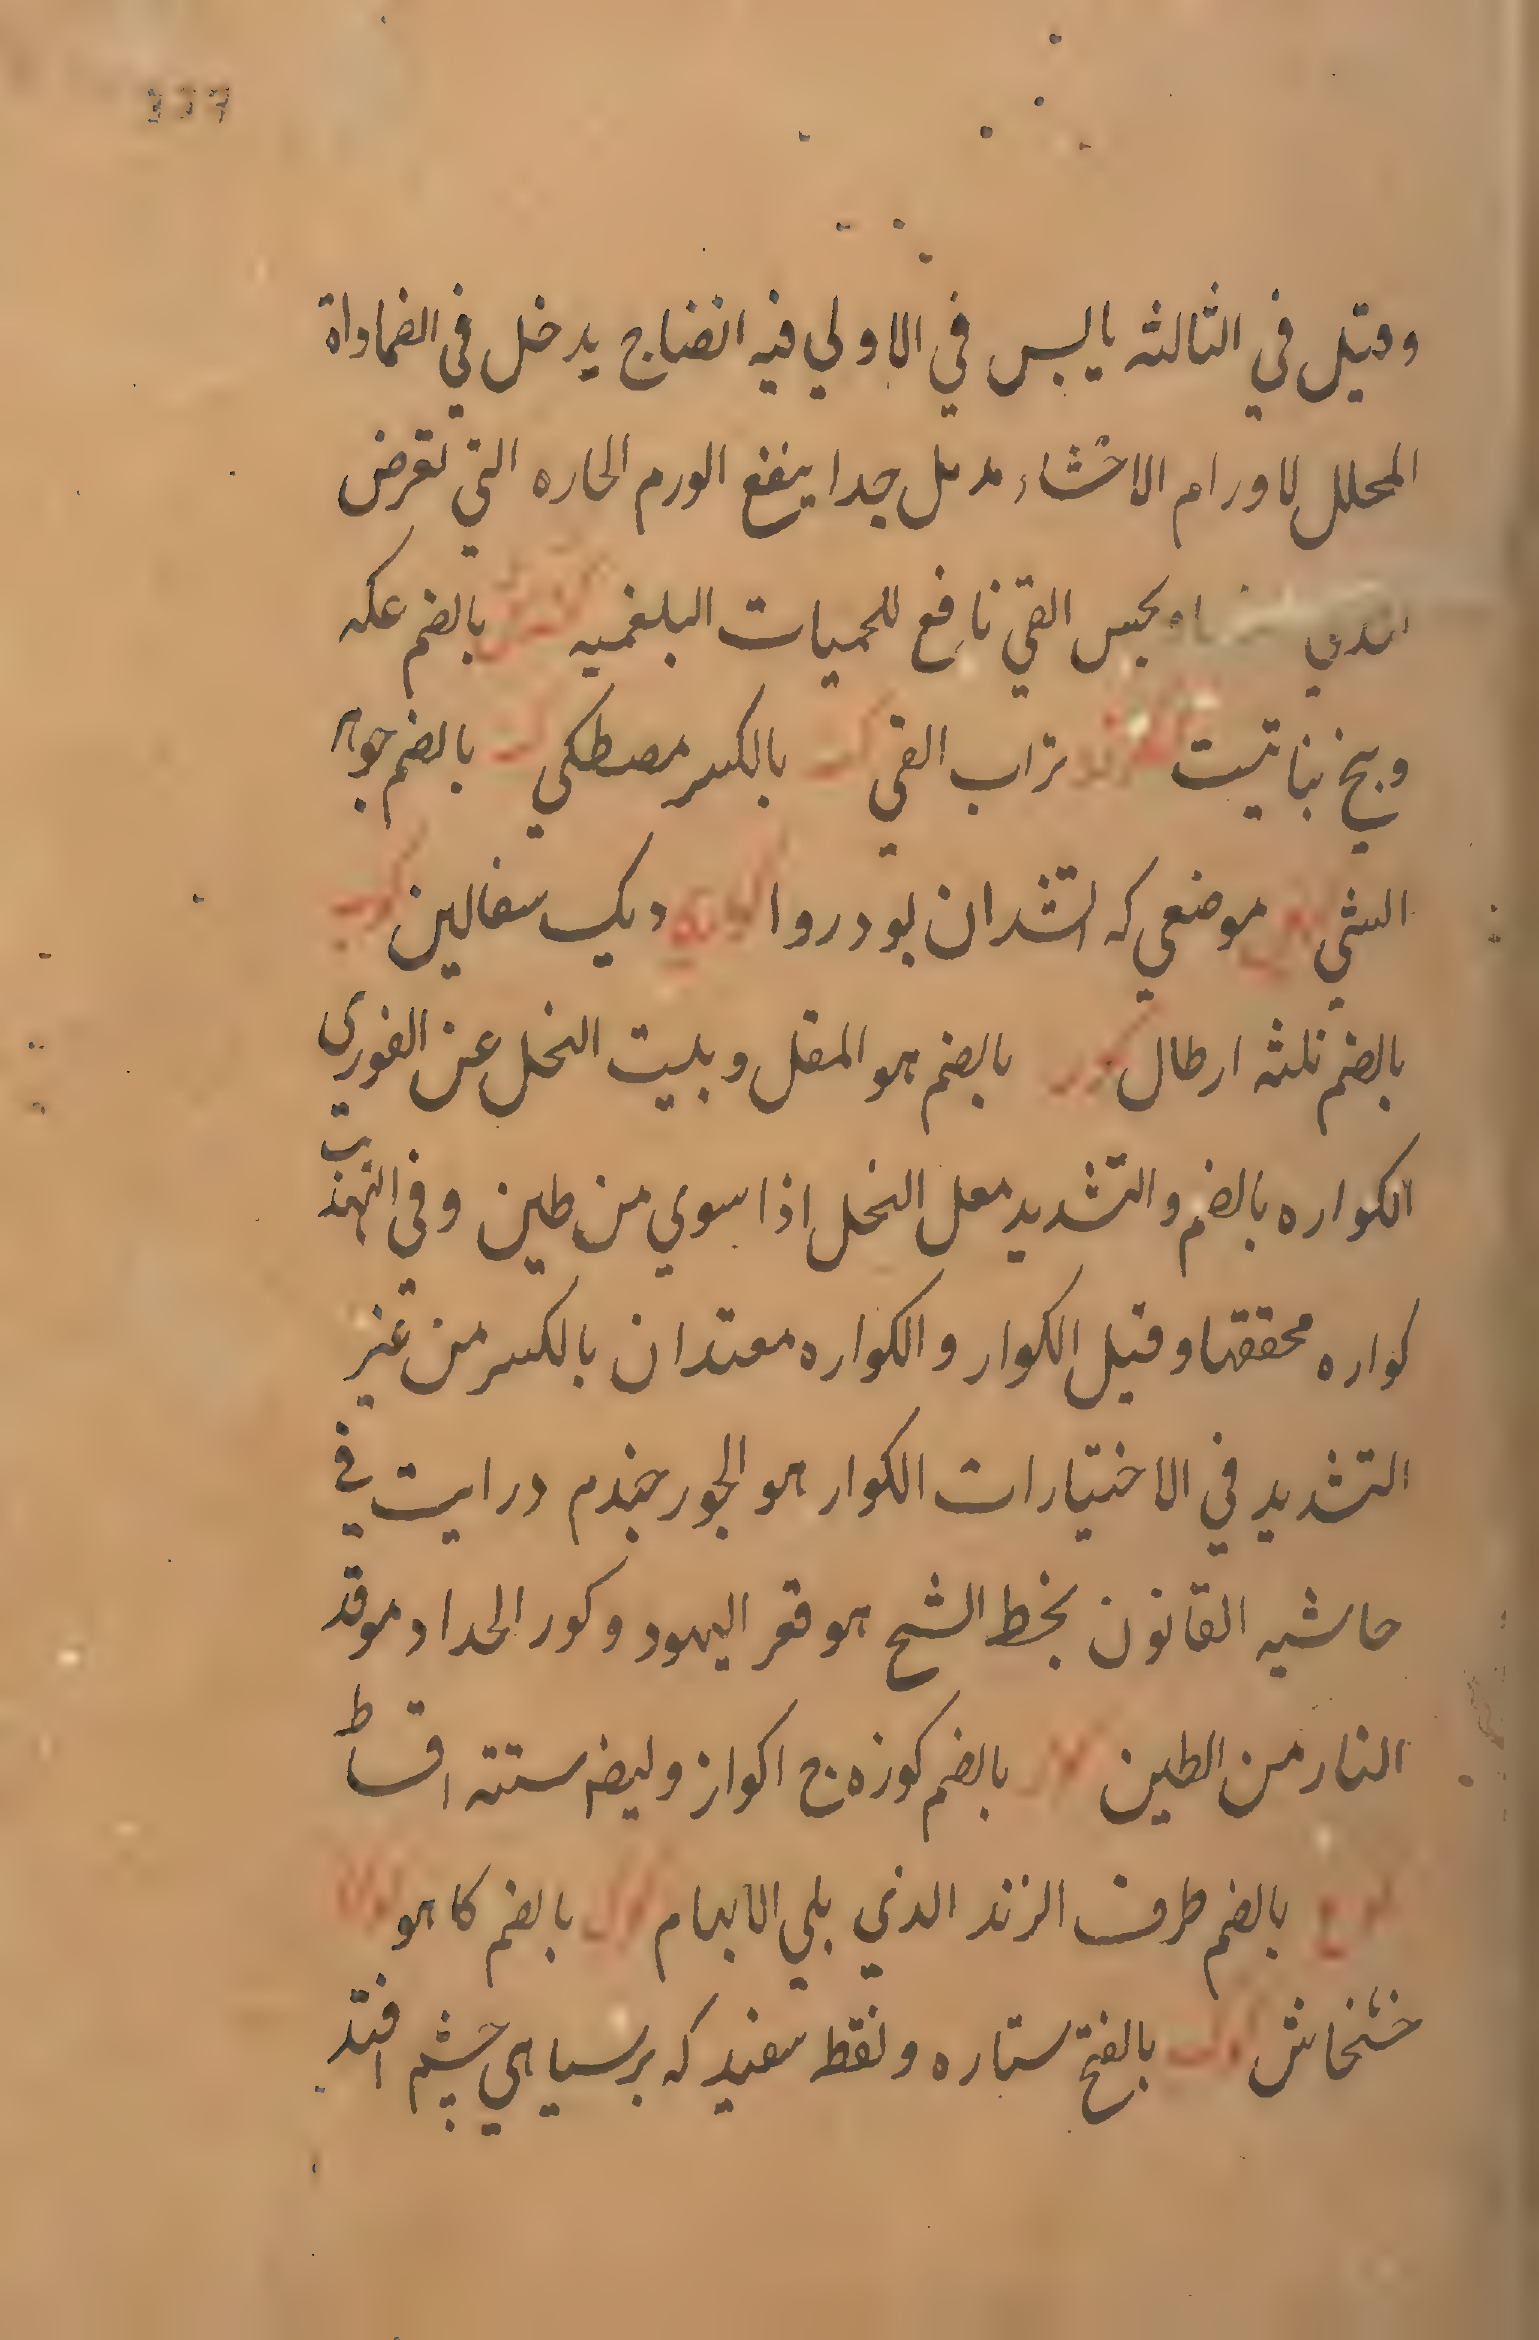 وقيل في الثالثه يابس في الاولي فيه انضاج يدخل في الضماداة
المحلل لاورام الاحشاء مدمل جدا ينفع الورم الحاره التي تعرض
يحبس القي نافع للحميات البلغميه بالضم عكه
وبيخ بناتيست تراب القي بالكسر مصطكي بالضم جواهر
الشي موضعي كه اتشدان بود روا ديك سفالين
بالضم ثلثه ارطال كور بالضم هو المقل وبيت النحل عن الغوري
الكواره بالضم والتشديد معل النحل اذا سوي من طين وفي التهذيب
كواره محققها وقيل الكوار والكواره معتدان بالكسر من غير
التشديد في الاختيارات الكوار هو الجور جندم درايت في
حاشيه القانون بخط الشيخ هو قفر اليهود وكور الحداد موقد
النار من الطين كوز بالضم كوزه ج اكواز وليضه ستته اقساط
كوع بالضم طرف الزند الذي يلي الابهام بالضم كاهو
خشخاش كوكب بالفتح ستاره ونقط سفيد كه بر سياهي چشم افتد